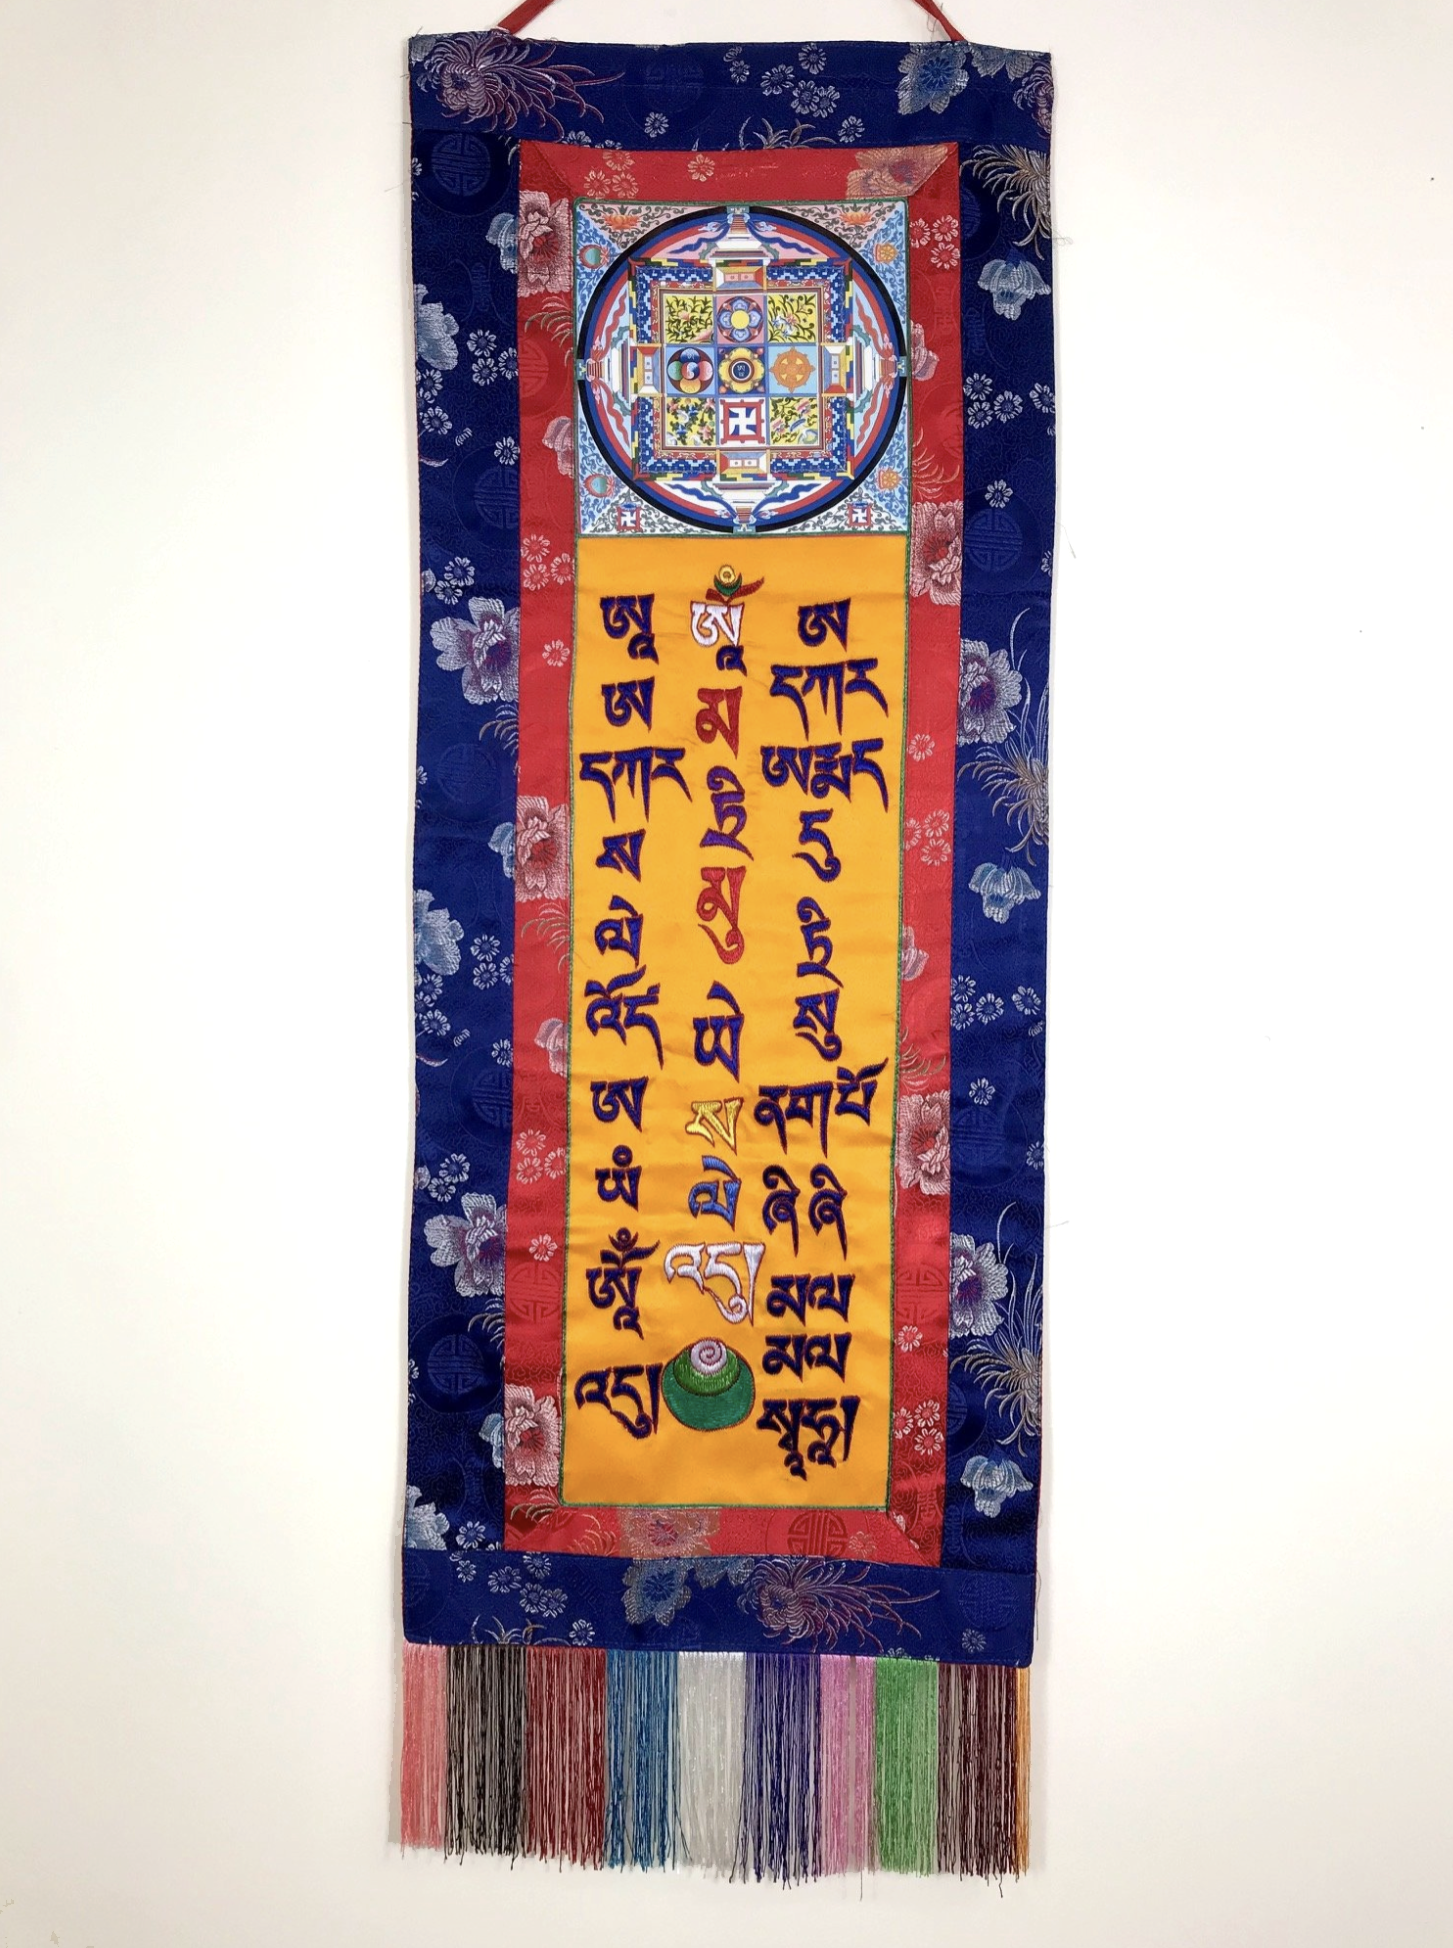 ཨཱ ཨ དཀར ས ལེ འོད ཨ ཡཾ ཨཱོཾ འདུ
ཨཱོཾ མ ཏྲི མུ ཡེ ས ལེ འདུ
ཨ དཀར ཨརྨད དུ ཏྲི སུ ནགཔོ ཞི ཞི མལ མལ སྭཱཧཱ